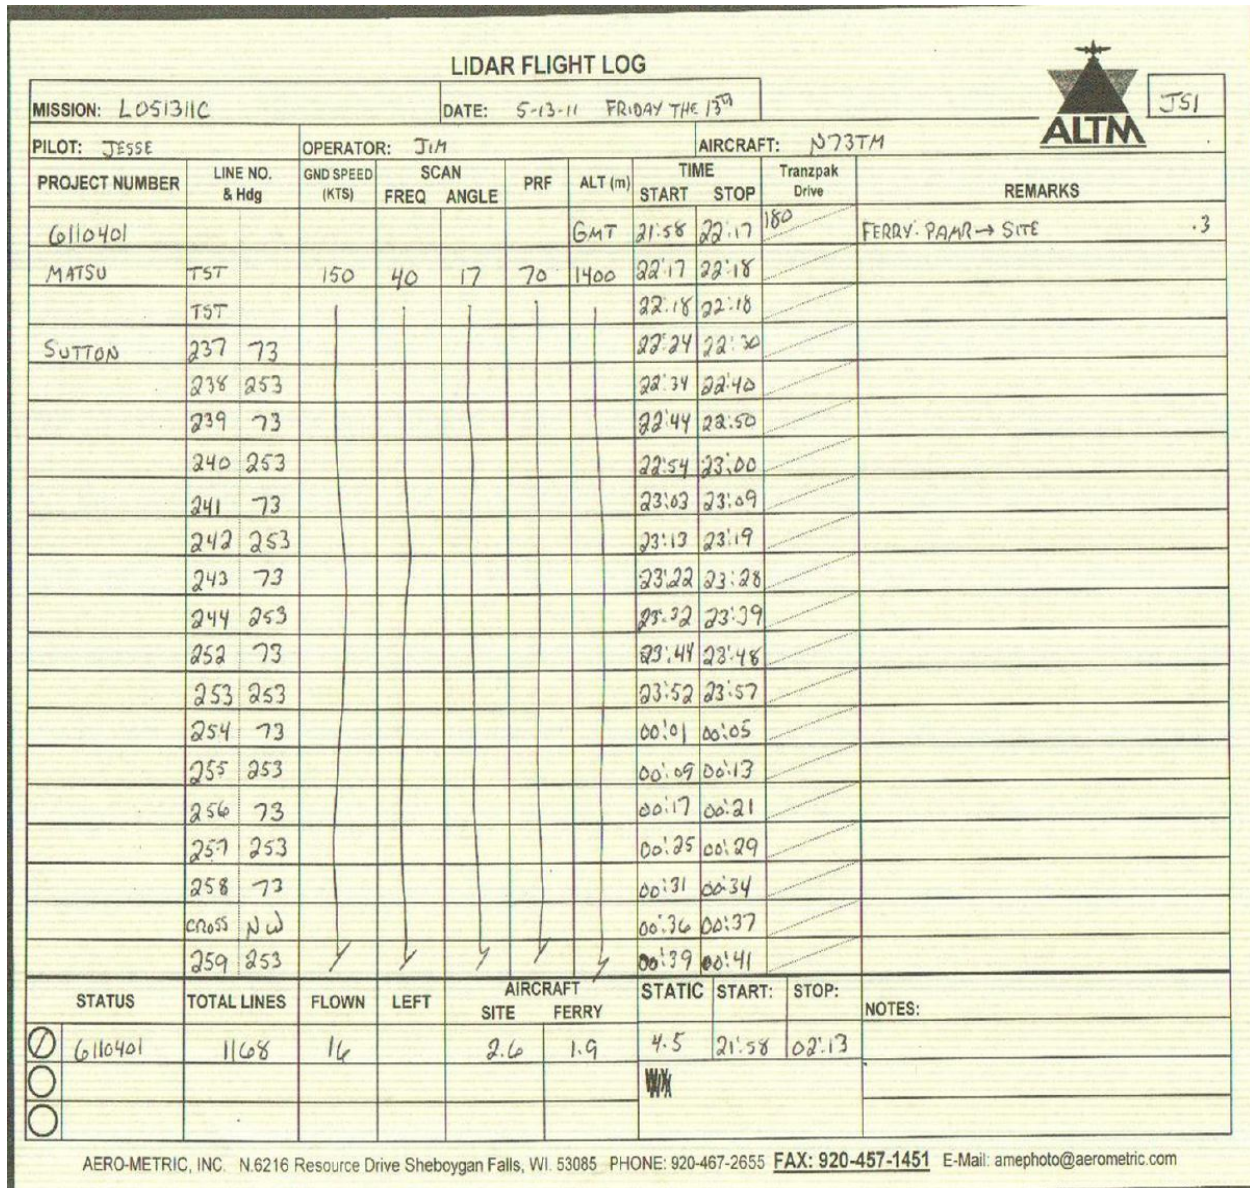 LIDAR FLIGHT LOG
MISSION: L051311C DATE: 5-13-11 FRIDAY THE 13TH
ALTM
JS1
PILOT: JESSE OPERATOR: JIM AIRCRAFT: N73TM
PROJECT NUMBER LINE NO. & Hdg GND SPEED (KTS) SCAN FREQ ANGLE PRF ALT (m) TIME START STOP Tranzpak Drive REMARKS
6110401 GMT 21:58 22:17 180 FERRY: PAMR → SITE .3
MATSU TST 150 40 17 70 1400 22:17 22:18
TST 22:18 22:18
SUTTON 237 73 22:24 22:30
238 253 22:34 22:40
239 73 22:44 22:50
240 253 22:54 23:00
241 73 23:03 23:09
242 253 23:13 23:19
243 73 23:22 23:28
244 253 23:32 23:39
252 73 23:44 23:48
253 253 23:52 23:57
254 73 00:01 00:05
255 253 00:09 00:13
256 73 00:17 00:21
257 253 00:25 00:29
258 73 00:31 00:34
CROSS NW 00:36 00:37
259 253 00:39 00:41
STATUS TOTAL LINES FLOWN LEFT AIRCRAFT SITE FERRY STATIC START: STOP: NOTES:
6110401 1168 16 2.6 1.9 4.5 21:58 02:13
AERO-METRIC, INC. N.6216 Resource Drive Sheboygan Falls, WI. 53085 PHONE: 920-467-2655 FAX: 920-457-1451 E-Mail: amephoto@aerometric.com